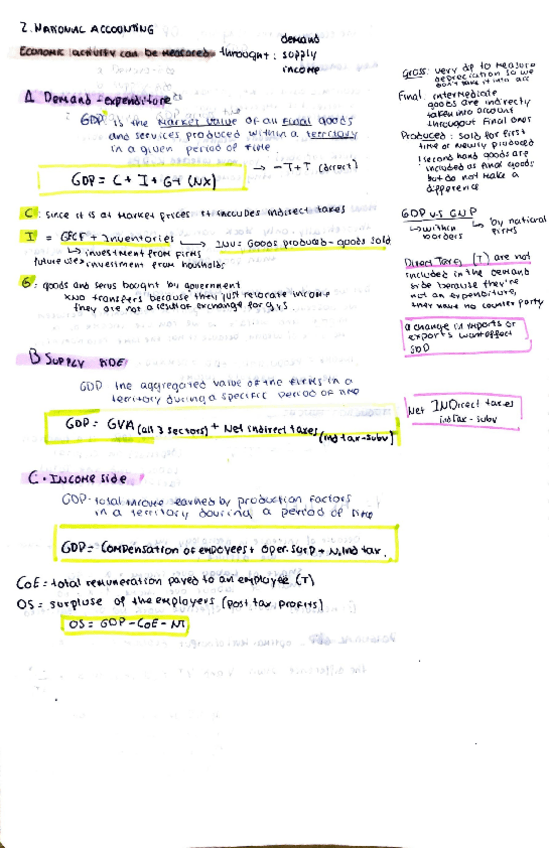 2. NATIONAL ACCOUNTING
Economic activity can be measured throught: demand
supply
income
A Demand - expenditure
GDP is the Market Value of all Final goods
and services produced within a territory
in a given period of time.
GDP = C + I + G + (NX) → -T+T (direct)
C: since it is at Market prices it includes indirect taxes
I = GFCF + Inventories → INV = Goods produced - goods sold
↳ investment from firms
future uses investment from housholds
G: goods and servs bought by government
NO transfers because they just relocate income
they are not a result of exchange for g,s
B SUPPLY SIDE
GDP the aggregated value of the firms in a
territory during a specific period of time
GDP = GVA (all 3 sectors) + Net indirect taxes (ind tax - subv)
C. INCOME side
GDP. total income earned by production factors
in a territory douring a period of time
GDP = Compensation of employees + Oper. surp + N.ind tax.
COE = total remuneration payed to an employee (T)
OS = surpluse of the employers (post tax profits)
OS = GDP - COE - NT
Gross: very dif to measure
depreciation so we
don't take it into acc
Final: intermediate
goods are indirectly
taken into account
throughout final ones
Produced: sold for first
time or newly produced
! second hand goods are
included as final goods
but do not make a
difference
GDP vs GNP
↳ within borders
↳ by national firms
Direct Taxes (T) are not
included in the demand
side because they're
not an expenditure,
they have no counter party
a change in imports or
exports wont effect
GDP
Net INDirect taxes
ind tax - subv